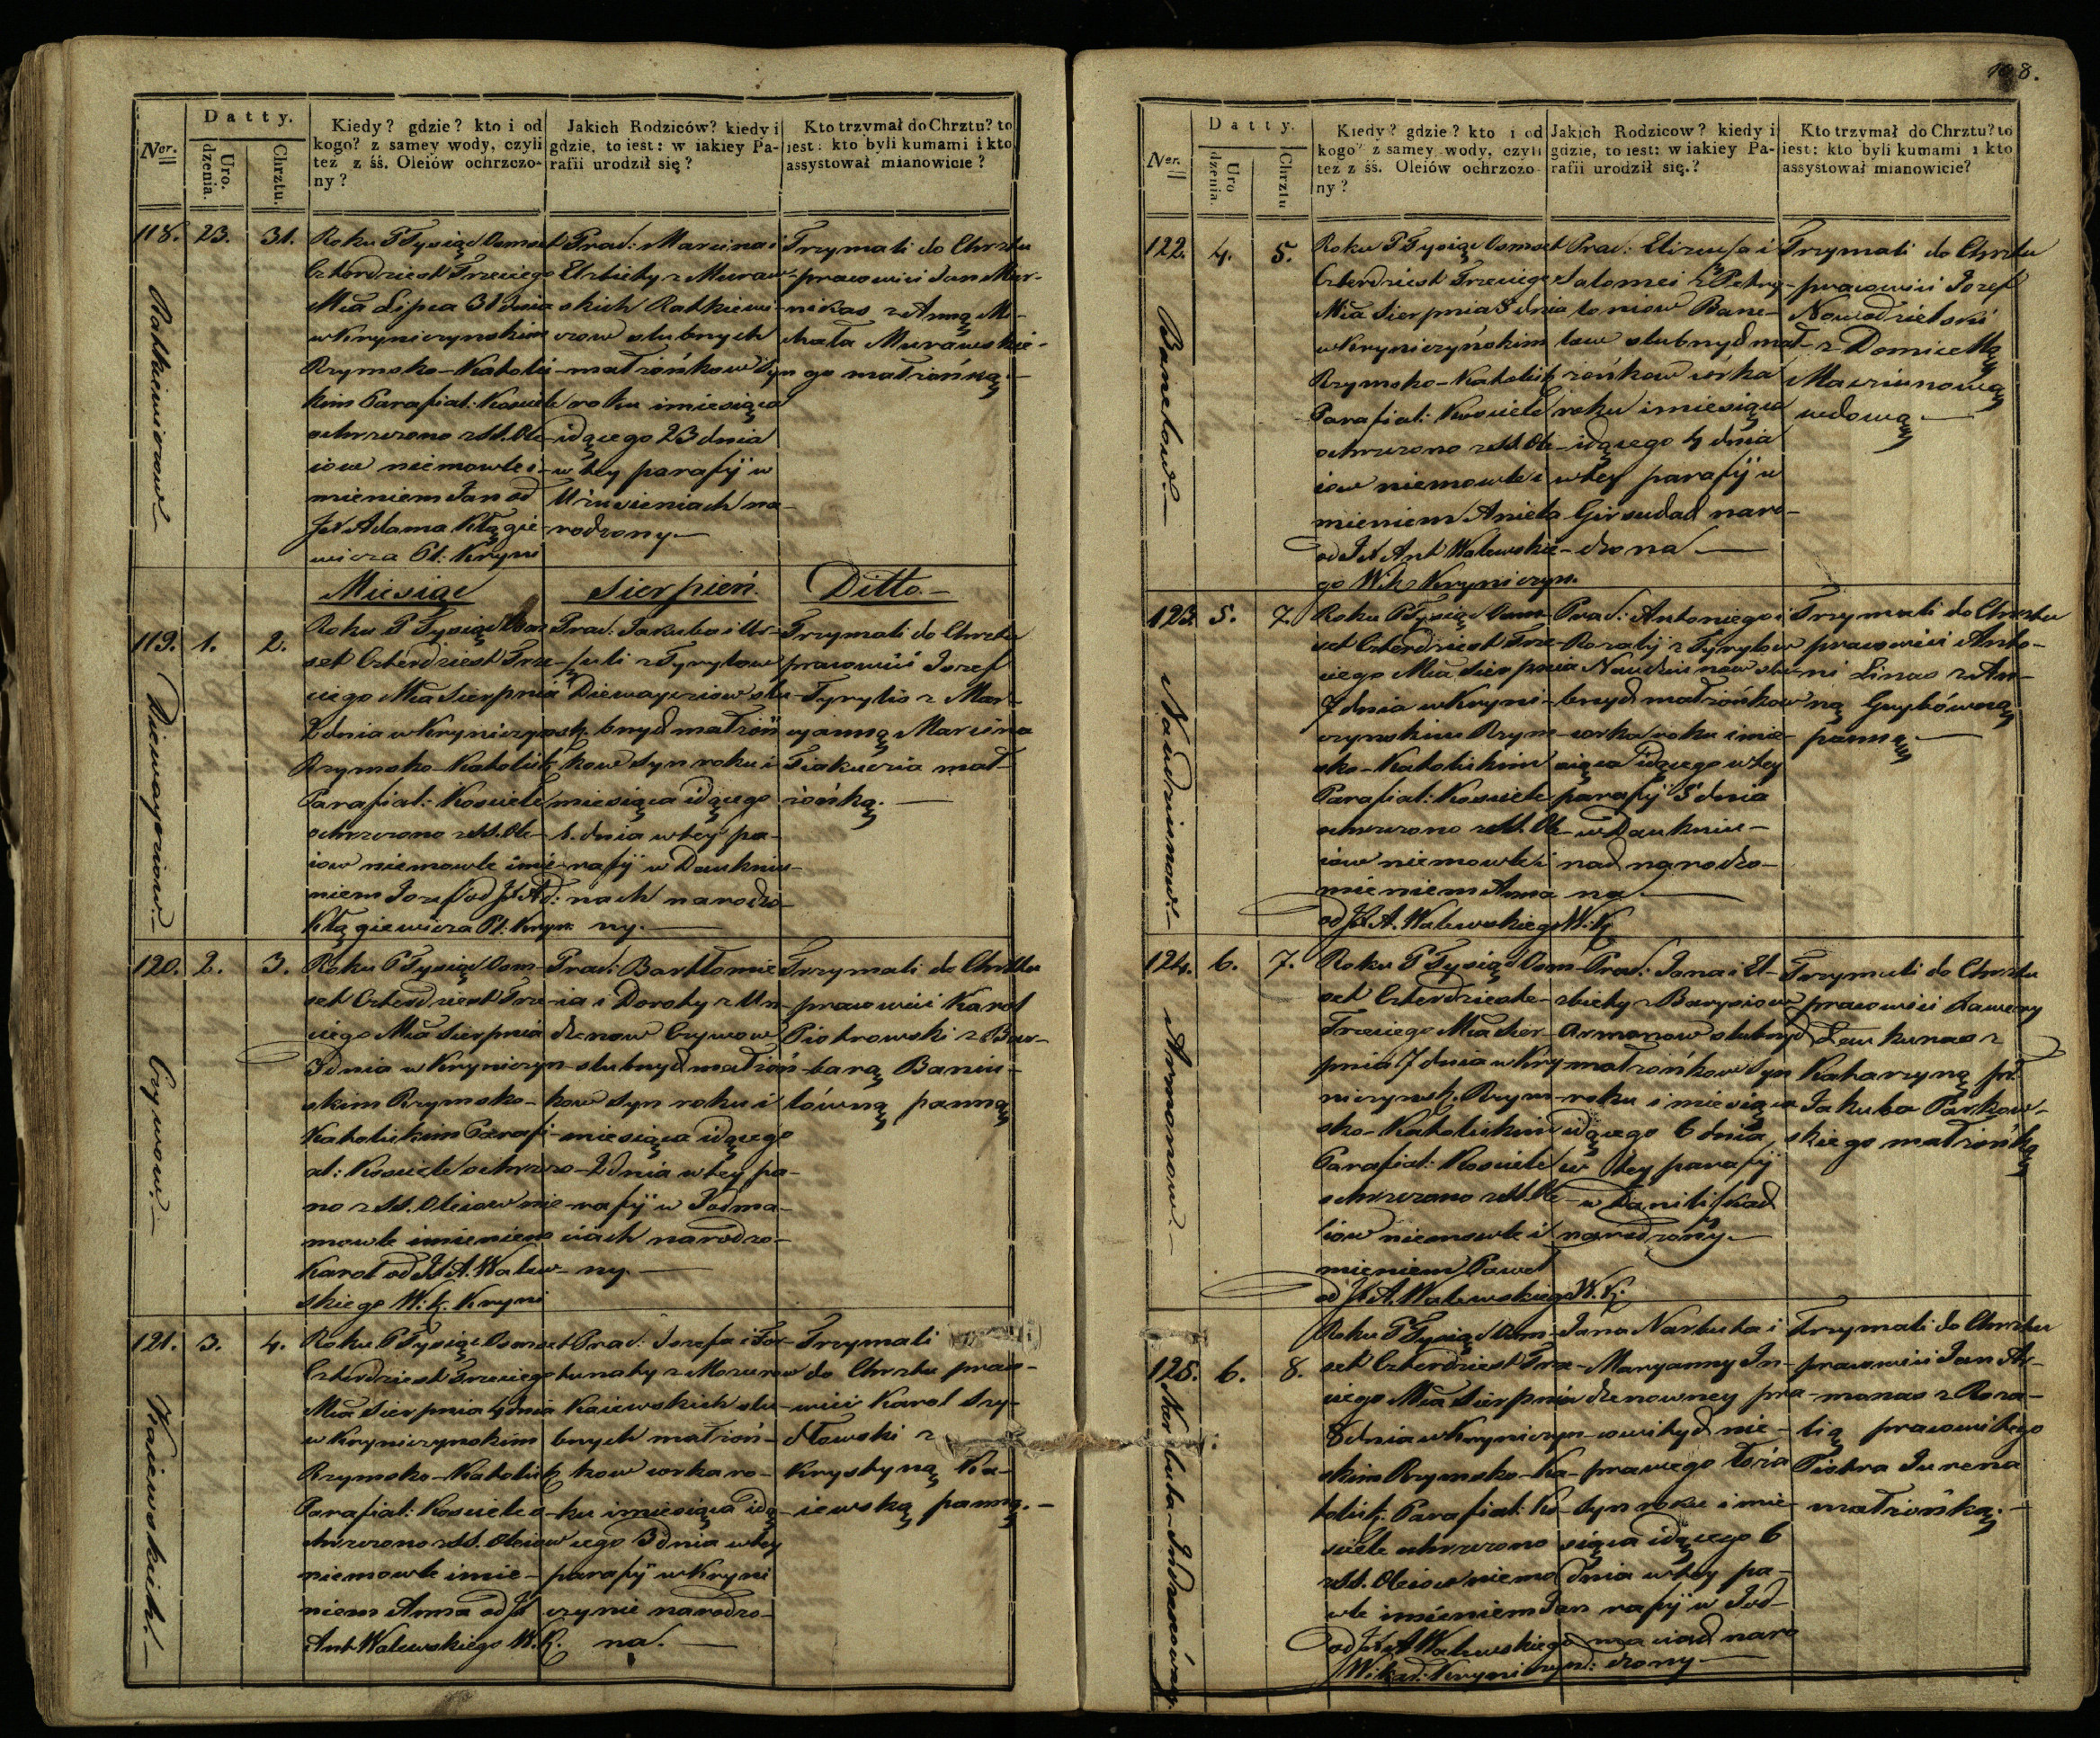 Ner.
Datty.
Uro.
dzenia.
Chrztu.
Kiedy? gdzie? kto i od
kogo? z samey wody, czyli
też z śś. Oleiów ochrzczo-
ny?
Jakich Rodziców? kiedy i
gdzie, to iest: w iakiey Pa-
rafii urodził się?
Kto trzymał do Chrztu? to
iest: kto byli kumami i kto
assystował mianowicie?
118. 23. 31.
Ratkiewiczow
Roku P Tysiąc Osmset
Czterdziest Trzeciego
Mia Lipca 31 dnia
w Kryniczynskim
Rzymsko-Katolic-
kim Parafial: Kosciele
ochrzczono z SS. Ole-
iow niemowle i-
mieniem Jan od
JX Adama Kłągie-
wicza Pl: Kryni
Prac: Marcina i
Elzbiety z Muraw-
skich Ratkiewi-
czow slubnych
małżońkow Syn
roku i miesiąca
idącego 23 dnia
w tey parafij w
Użusieniach na-
rodzony.
Trzymali do Chrztu
pracowici Jan Mar-
nikas z Anną Mi-
chała Murawskie-
go małżońką.
Miesiąc Sierpień. Ditto.
119. 1. 2.
Diewayciow
Roku P Tysiąc Osm
set Czterdziest Trze-
ciego Mia Sierpnia
2 dnia w Kryniczynsk.
Rzymsko-Katolick
Parafial: Kosciele
ochrzczono z SS. Ole-
iow niemowle imie-
niem Jozef od JX Ad:
Kłągiewicza Pl: Kryn:
Prac: Jakuba i Ur-
szuli z Tyrylow
Diewayciow slu-
bnych małżoń
kow Syn roku i
miesiąca idącego
1. dnia w tey pa-
rafij w Daukniu-
nach narodzo-
ny.
Trzymali do Chrztu
pracowici Jozef
Tyrylis z Mar-
cyanną Marcina
Siakucia mał-
żońką.
120. 2. 3.
Czywow.
Roku P Tysiąc Osm-
set Czterdziest Trze-
ciego Mia Sierpnia
3 dnia w Kryniczyn-
skim Rzymsko-
Katolickim Parafi-
al: Kosciele ochrzczo-
no z SS. Oleiow nie-
mowle imieniem
Karol od JX A. Walew-
skiego W: K. Kryni
Prac: Bartłomie
ia i Doroty z Un-
dzenow Czywow
slubnych małżoń-
kow Syn roku i
miesiąca idącego
2 dnia w tey pa-
rafij w Jodma-
ciach narodzo-
ny.
Trzymali do Chrztu
pracowici Karol
Piotrowski z Bar-
barą Baniu-
lówną panną
121. 3. 4.
Kaiewskich.
Roku P Tysiąc Osmset
Czterdziest Trzeciego
Mia Sierpnia 4 dnia
w Krynicznynskim
Rzymsko-Katolick
Parafial: Kosciele o-
chrzczono z SS. Oleiow
niemowle imie-
niem Anna od JX
Ant Walewskiego W. K.
Prac: Jozefa i For-
tunaty z Mozurow
Kaiewskich slu-
bnych małżoń-
kow corka ro-
ku i miesiąca idą-
cego 3 dnia w tey
parafij w Kryni
czynie narodzo-
na.
Trzymali
do Chrztu prac-
owici Karol Szy-
dłowski z
Krystyną Ka-
iewską panną.
108.
Ner.
Datty.
Uro
dzenia.
Chrztu
Kiedy? gdzie? kto i od
kogo? z samey wody, czyli
też z śś. Oleiów ochrzczo-
ny?
Jakich Rodzicow? kiedy i
gdzie, to iest: w iakiey Pa-
rafii urodził się.?
Kto trzymał do Chrztu? to
iest: kto byli kumami i kto
assystował mianowicie?
122. 4. 5.
Banelow.
Roku P Tysiąc Osmset
Czterdziest Trzeciego
Mia Sierpnia 5 dnia
w Krynicznynskim
Rzymsko-Katolick
Parafial: Kosciele
ochrzczono z SS. Ole-
iow niemowle i
mieniem Aniela
od JX Ant Walewskie-
go Wik Kryniczyn.
Prac: Elizeusza i
Salomei z Petry-
toniow Bane-
low slubnych mał-
żońkow corka
roku i miesiąca
idącego 4 dnia
w tey parafij w
Girsudach naro-
dzona
Trzymali do Chrztu
pracowici Jozef
Nowodzielski
z Domicellą
Marcinową
wdową.
123. 5. 7.
Naudziunow
Roku P Tysiąc Osm-
set Czterdziest Trze-
ciego Mia Sierpnia
7 dnia w Kryni-
czynskim Rzym-
sko-Katolickim
Parafial: Kosciele
ochrzczono z SS. Ole-
iow niemowle i
mieniem Anna
od JX A. Walewskiego W: K
Prac: Antoniego i
Rozalij z Tyrylow
Naudziunow slu-
bnych małżońkow
corka roku i mie-
siąca idącego w tey
parafij 5 dnia
w Daukniu-
nach narodzo-
na
Trzymali do Chrztu
pracowici Anto-
ni Linas z An-
ną Grybówną
panną.
124. 6. 7.
Armonow.
Roku P Tysiąc Osm-
set Czterdzieste-
Trzeciego Mia Sier-
pnia 7 dnia w Kry
niczynsk. Rzym-
sko-Katolickim
Parafial: Kosciele
ochrzczono z SS. Ole-
iow niemowle i
mieniem Paweł
od JX A. Walewskiego W. K.
Prac: Jana i El-
zbiety z Barysiow
Armonow slubnych
małżońkow Syn
roku i miesiąca
idącego 6 dnia
w tey parafij
w Daniliszkach
narodzony.
Trzymali do Chrztu
pracowici Xawery
Laukunas z
Katarzyną pr.
Jakuba Paszkow-
skiego małżońką
125. 6. 8.
Narbuta-Indzenówney.
Roku P Tysiąc Osm-
set Czterdziest Trze-
ciego Mia Sierpnia
8 dnia w Kryniczyn-
skim Rzymsko-Ka-
tolick. Parafial: Ko-
sciele ochrzczono
z SS. Oleiow niemo
wle imieniem Jan
od JX A Walewskiego
Wikar: Kryniczyns:
Jana Narbuta i
Maryanny In-
dzenowney pra-
cowitych nie-
prawego łoża
Syn roku i mie-
siąca idącego 6
dnia w tey pa-
rafij w Jod-
maciach naro
dzony
Trzymali do Chrztu
pracowici Jan Ar-
monas z Roza-
lią pracowitego
Piotra Jurena
małżońką.